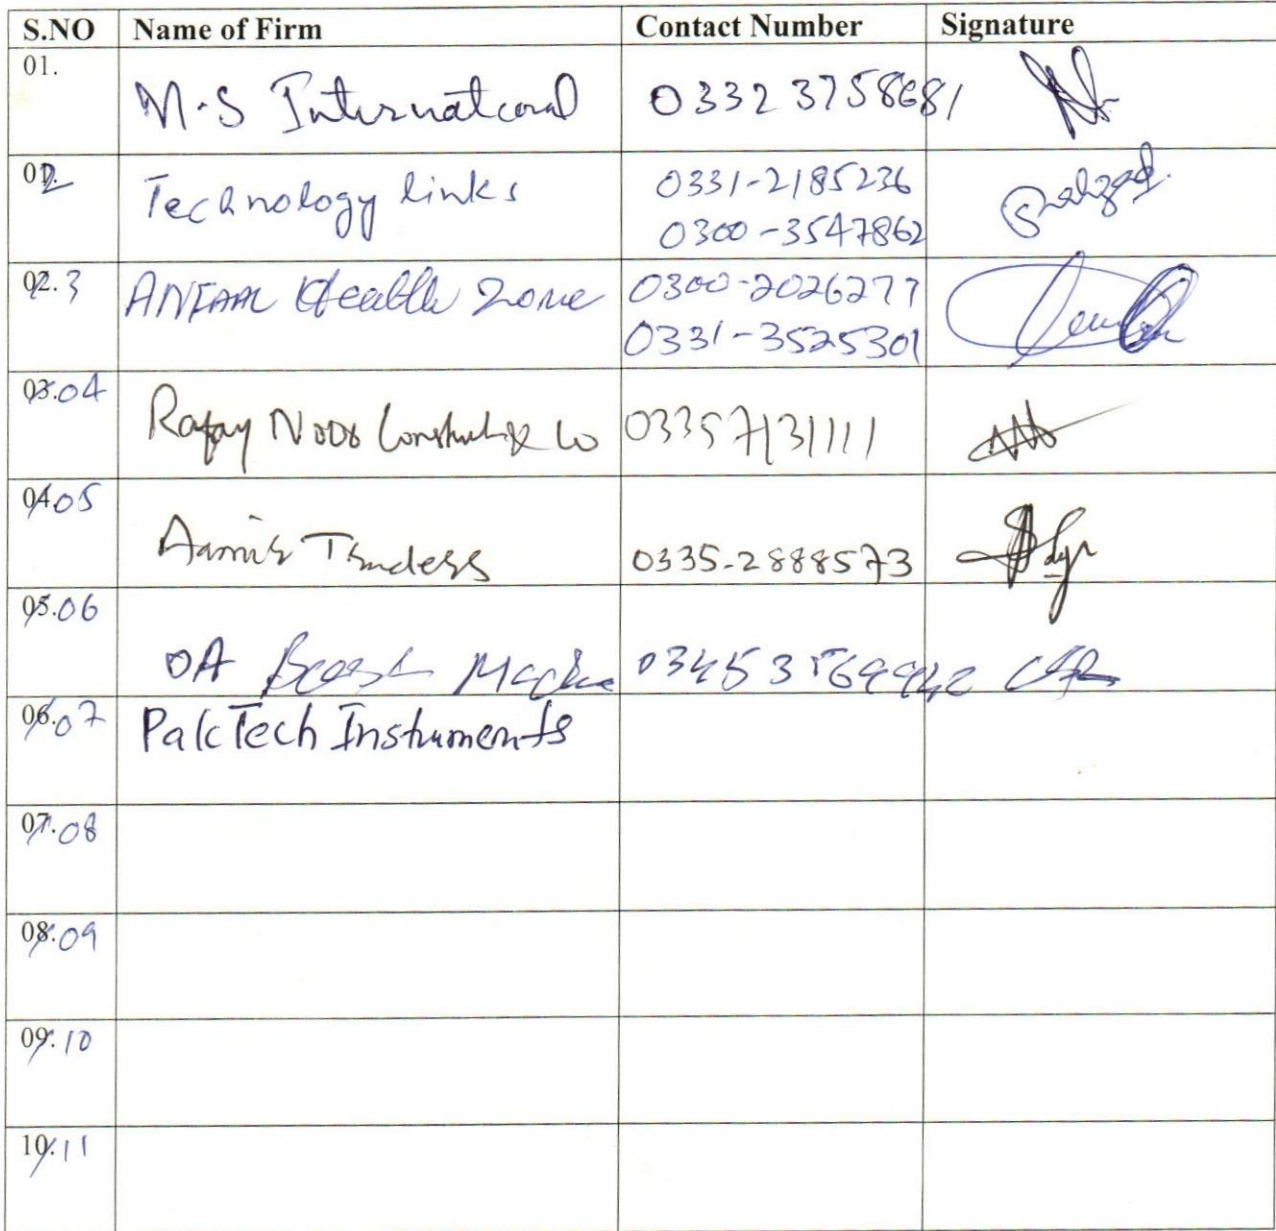 S.NO Name of Firm Contact Number Signature
01. M.S International 0332 3758681
02 Technology links 0331-2185236
0300-3547862
02.3 ANFAAL Health Zone 0300-2026277
0331-3525301
03.04 Rafay Noor Construction Co 03357131111
04.05 Aamir Traders 0335-2888573
05.06 OA
06.07 PakTech Instruments
07.08
08.09
09.10
10.11